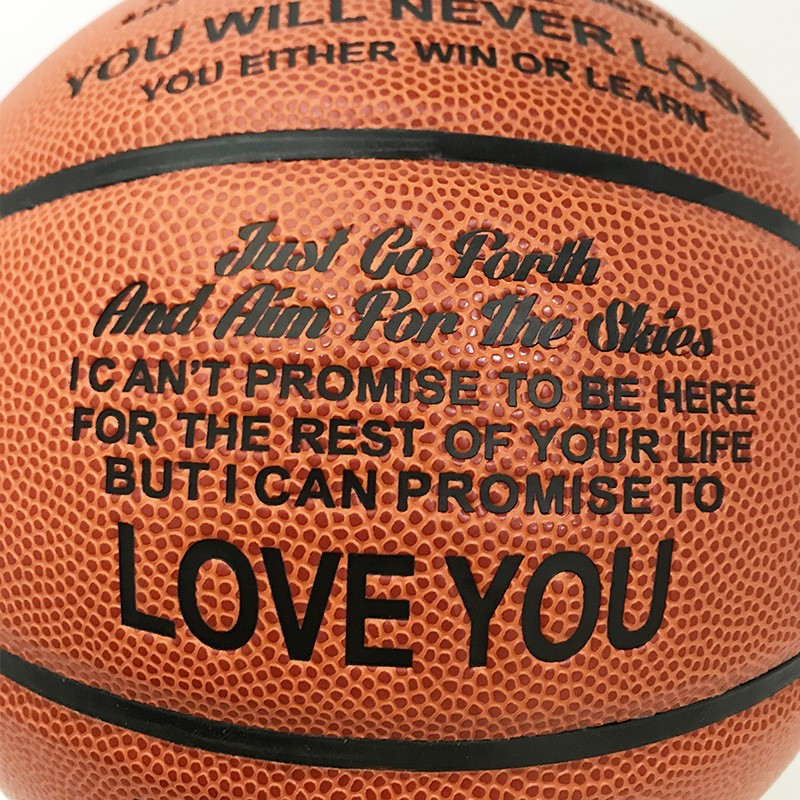 YOU WILL NEVER LOSE
YOU EITHER WIN OR LEARN
Just Go Forth
And Aim For The Skies
I CAN'T PROMISE TO BE HERE
FOR THE REST OF YOUR LIFE
BUT I CAN PROMISE TO
LOVE YOU